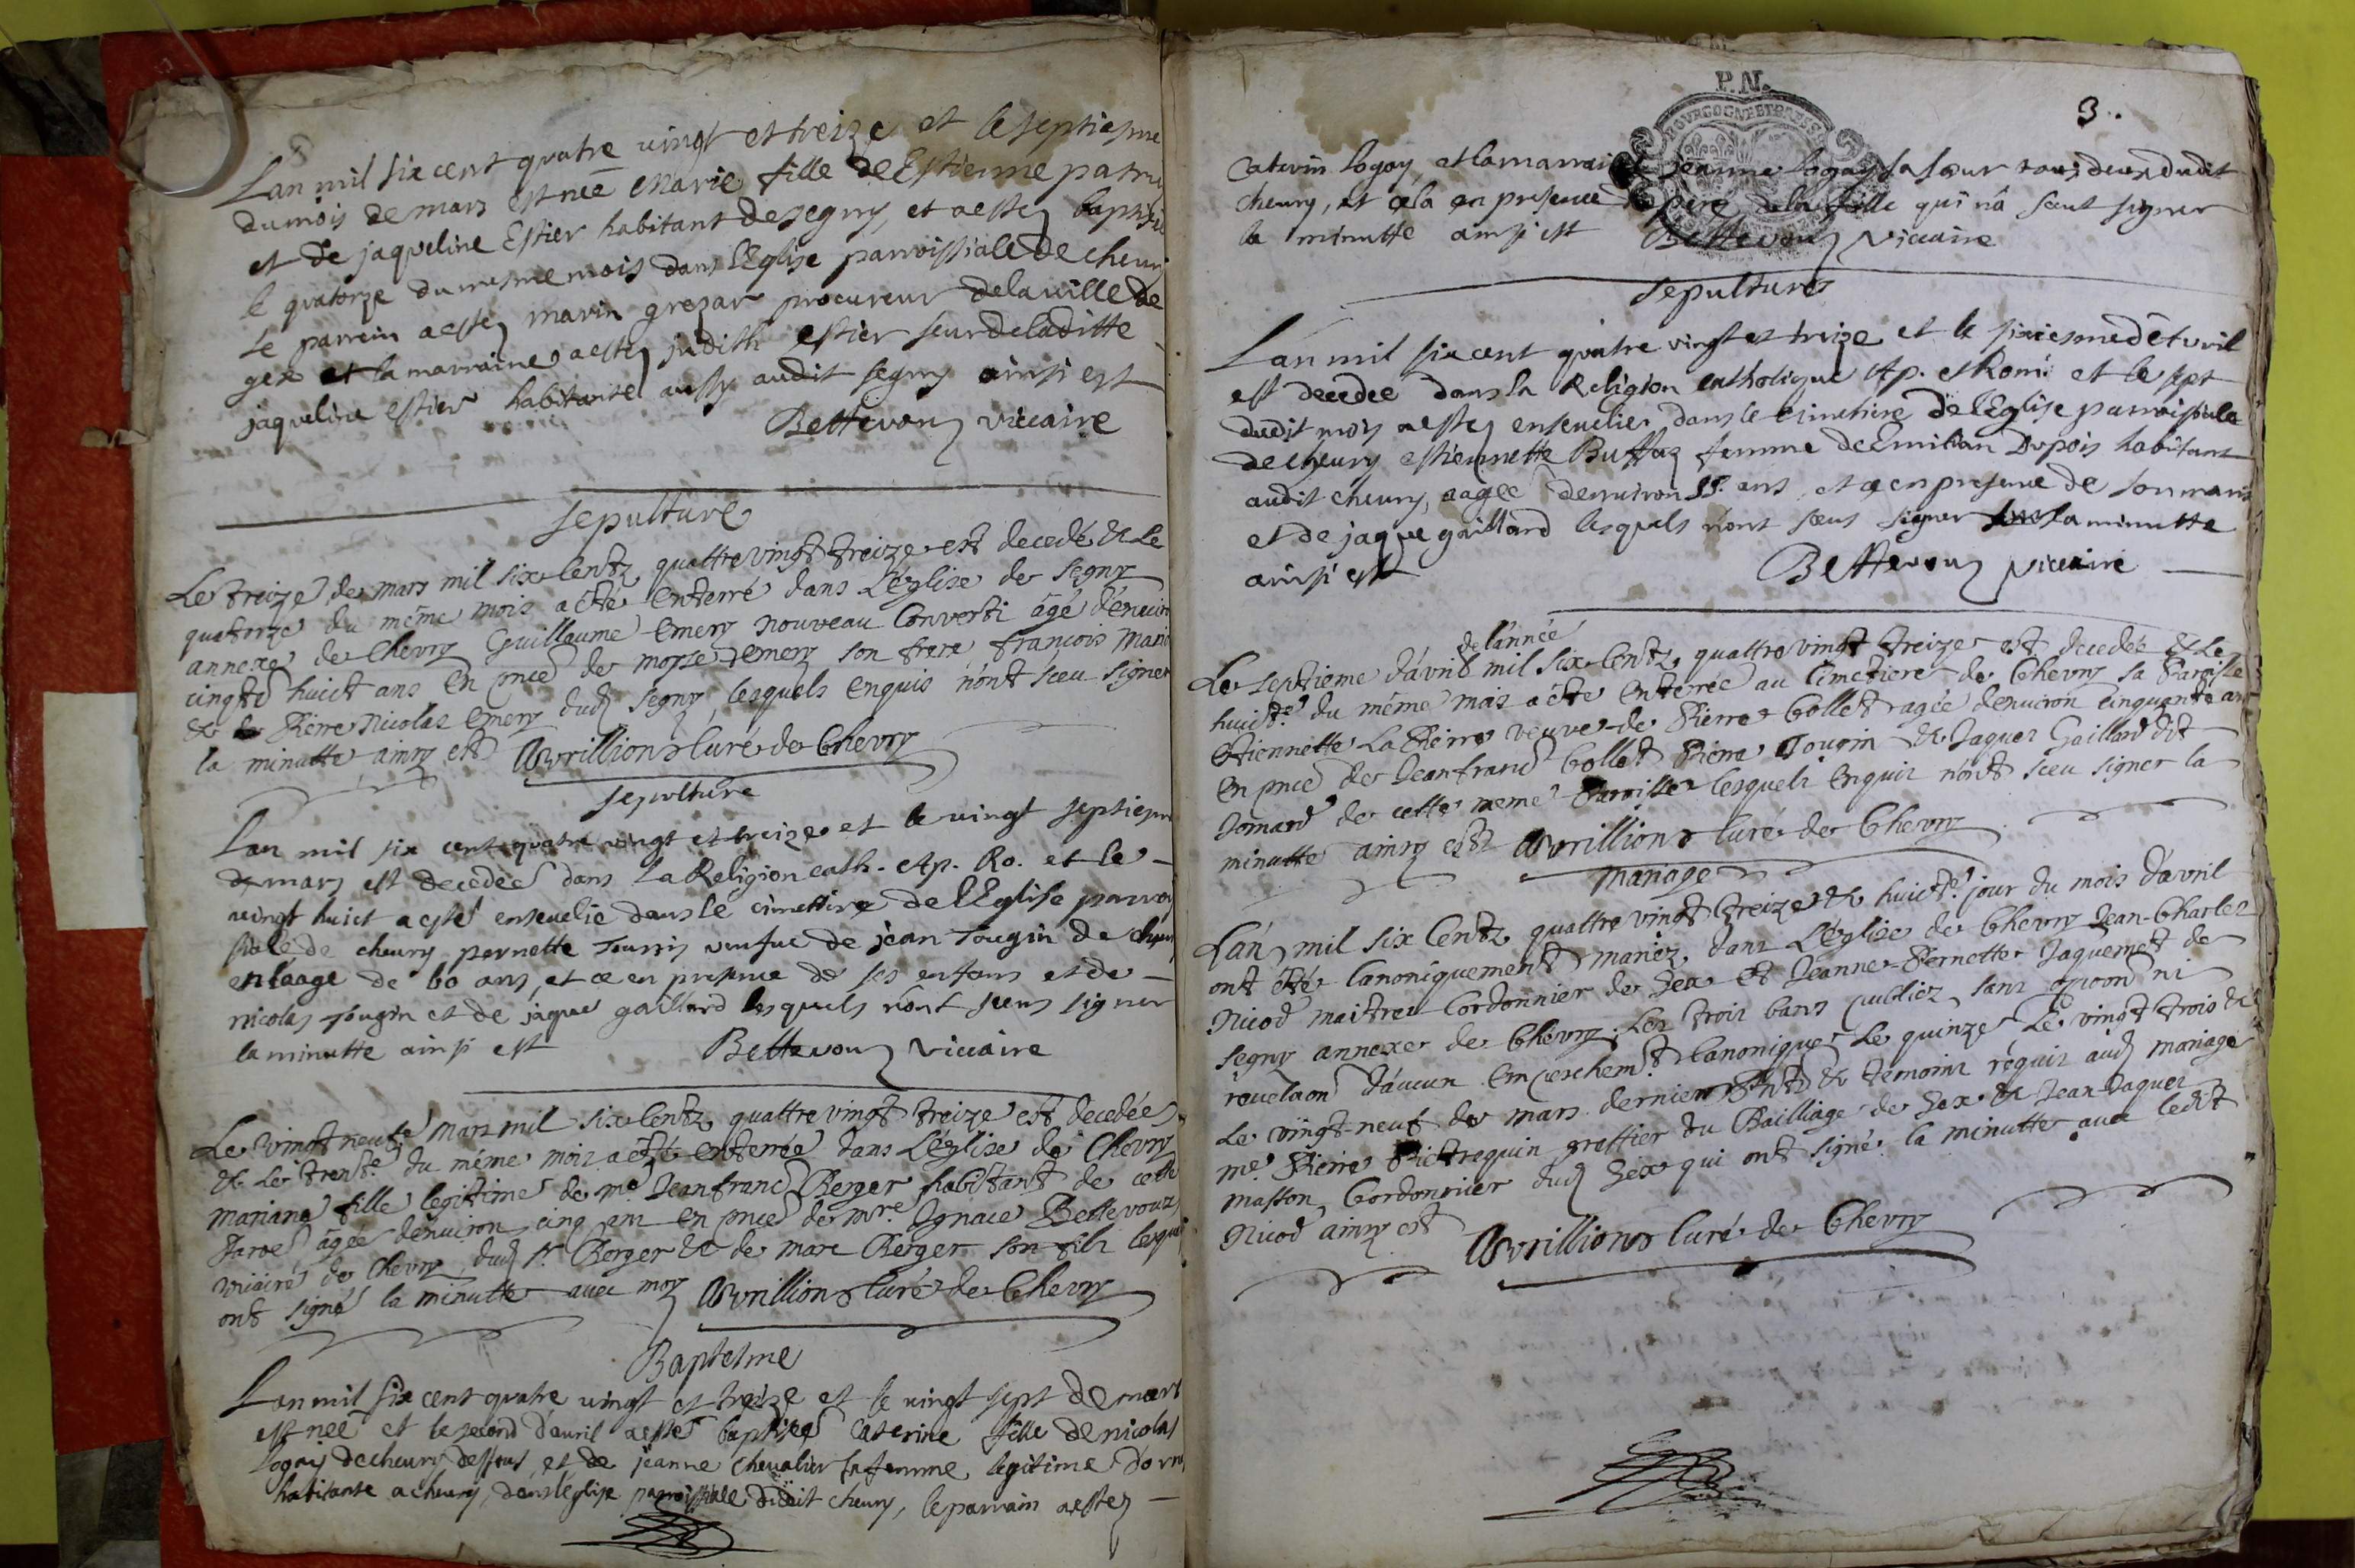 Lan mil six cent quatre vingt et treize et le septiesme
du mois de mars est née Marie fille de Estienne
et de jaqueline Estier habitant de segny, et a esté baptisée
le quatorze du mesme mois dans l'Eglise parroissiale de cheury
le parrein a esté marin grezar procureur de la ville de
gex et la marraine a esté judith estier seur de laditte
jaqueline estier habitante aussy audit segny ainsi est
Bettevouz viccaire
sepulture
Le treize de mars mil six centz quattre vingt treize est decedé & Le
quatorze du même mois a été enterré dans L'église de segny
annexe de Chevry Guillaume Emery nouveau Converti âgé d'envi
vingt huict ans En pnce de moyse Emery son frere francois Mari
& de Pierre Nicolas Emery dud segny, lesquels enquis n'ont sceu signer
la minutte ainsy est Avrillion Curé de Chevry
sepulture
Lan mil six cent quatre vingt et treize et le vingt septiesm
de mars est decedée dans la Religion cath. Ap. Ro. et le
vingt huict a esté ensevelie dans le cimettire de l'Eglise parroi
siale de cheury pernette Tourris veufue de jean Tougin de cheury
en laage de 60 ans, et ce en presence de ses enfans et de
nicolas Tougin et de jaque gaillard lesquels n'ont sceus signer
la minutte ainsi est Bettevouz Viccaire
Le vingt neufe mars mil six Centz quattre vingt treize est decedée
& Le trente du même mois a été enterrée dans L'église de Chevry
Mariane fille legitime de me Jean franc Berger habitant de cette
Paroe âgée d'environ cinq ans en pnce de mre Ignace Bettevouz
vicaire de Chevry dud sr Berger & de marc Berger son fils lesqu
ont signé la minutte avec moy Avrillion Curé de Chevry
Baptesme
Lan mil six cent quatre vingt et treize et le vingt sept de mars
est née et le second d'auril a esté baptisée Caterine fille de nicolas
Logay de cheury dessous, et de jeanne chevalier sa femme legitime
habitante a cheury, dans l'église parroissiale dudit cheury, le parrain a esté
P.N.
BOURGOGNE ET BRESSE
3.
Caterin Logay, et la marraine jeanne Logay sa soeur tous deux dudit
cheury, et cela en presence du pere de la fille qui n'a sceut signer
la minutte ainsi est Bettevouz Viccaire
sepulture
Lan mil six cent quatre vingt et treize et le sixiesme d'Avril
est decedée dans la Religion catholique Ap. et Rom. et le sept
dudit mois a esté ensevelie dans le cimetiere de l'Eglise parroissiale
de cheury estiennette Buffaz femme de Emilian Dupois habitant
audit cheury, aagée d'environ 55. ans, et ce en presence de son mari
et de jaque gaillard lesquels n'ont sceus signer la minutte
ainsi est Bettevouz Viccaire
de l'année
Le septieme d'avril mil six Centz quattre vingt treize est decedée & Le
huicte du même mois a été enterrée au Cimetiere de Chevry sa Paroisse
Etiennette La Pierre veuve de Pierre Collet agée d'environ cinquante an
En pnce de Jean franc Collet Pierre Tougin & Jaques Gaillard dit
Jomard de cette meme Paroisse lesquels enquis n'ont sceu signer la
minutte ainsy est Avrillion Curé de Chevry
mariage
L'an mil six Centz quattre vingt treize & huicte jour du mois d'avril
ont été Canoniquement mariez dans L'église de Chevry Jean-Charles
Nicod maitre Cordonnier de Gex et Jeanne-Pernette Jaquemet de
segny annexe de Chevry, Les trois bans publiez sans opoon ni
revelaon d'aucun Empeschemt Canonique Le quinze Le vingt trois &
Le vingt-neuf de mars dernier & temoins requis aud mariage
me Pierre Pictrequin greffier du Bailliage de Gex & Jean Jaques
masson Cordonnier dud Gex qui ont signé la minutte avec ledit
Nicod ainsy est Avrillion Curé de Chevry